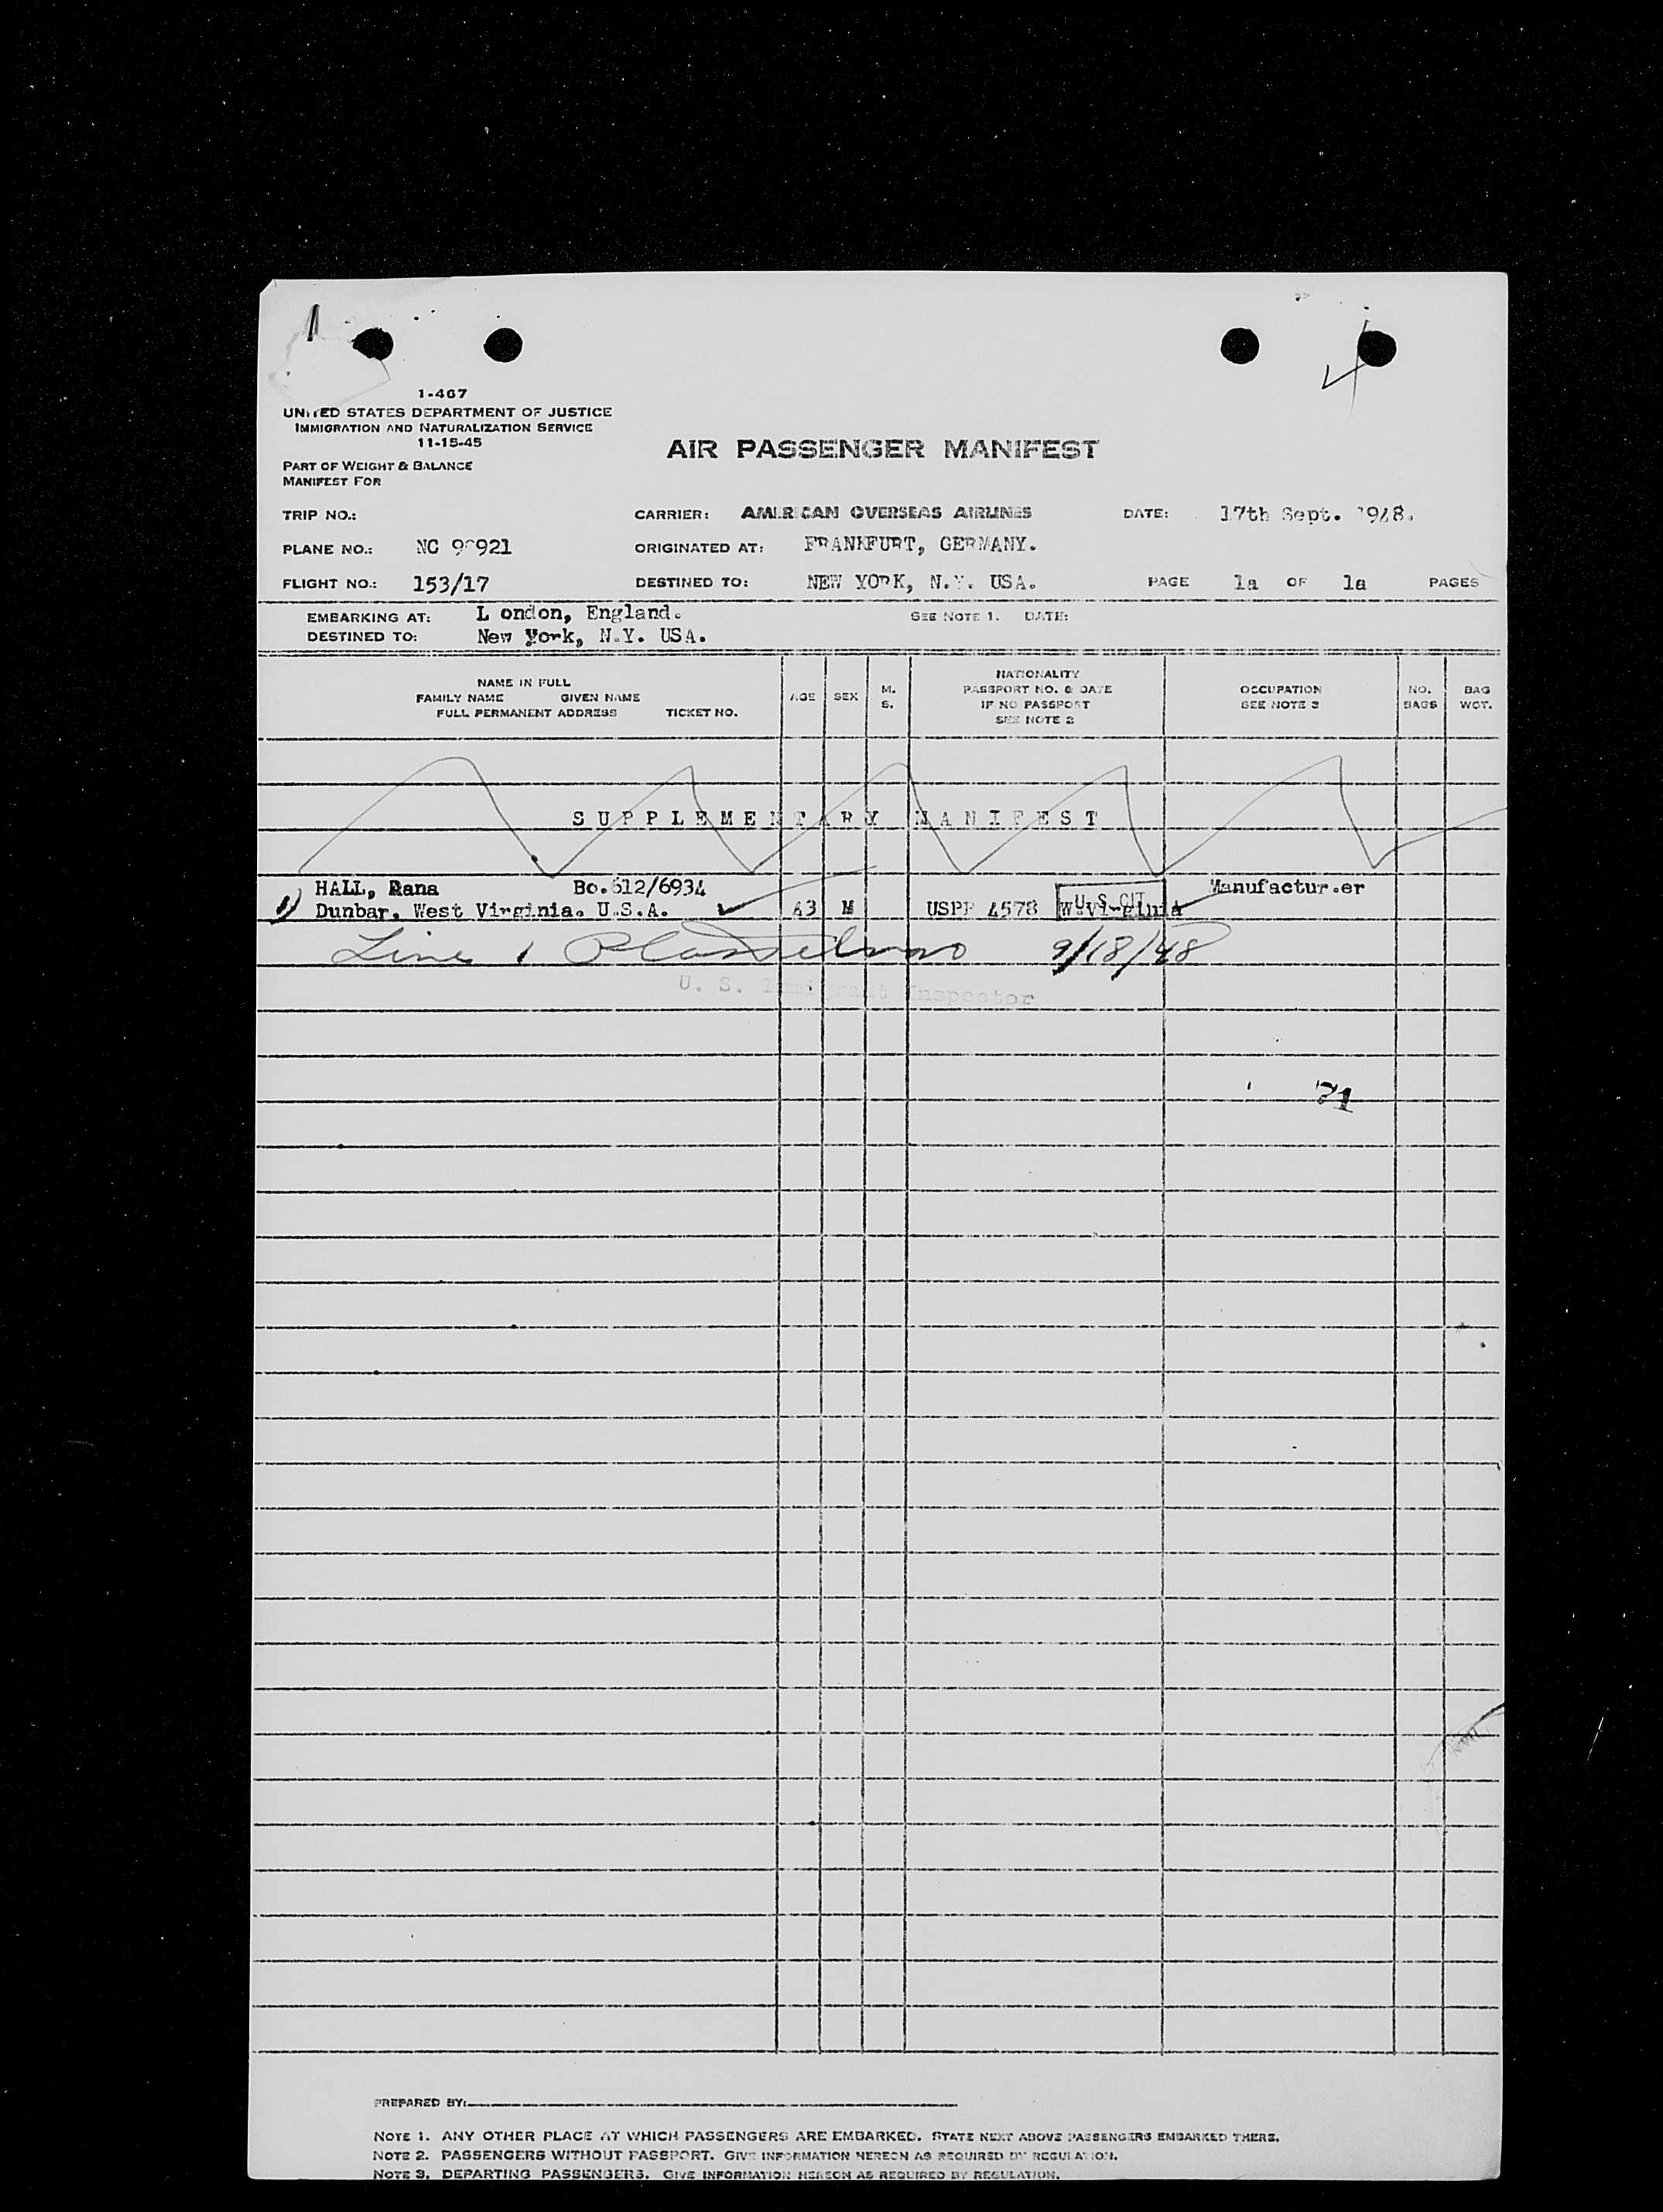 1
1-467
UNITED STATES DEPARTMENT OF JUSTICE
IMMIGRATION AND NATURALIZATION SERVICE
11-15-45
AIR PASSENGER MANIFEST
PART OF WEIGHT & BALANCE
MANIFEST FOR
TRIP NO.: CARRIER: AMERICAN OVERSEAS AIRLINES DATE: 17th Sept. 1948.
PLANE NO.: NC 90921 ORIGINATED AT: FRANKFURT, GERMANY.
FLIGHT NO.: 153/17 DESTINED TO: NEW YORK, N.Y. USA. PAGE 1a OF 1a PAGES
EMBARKING AT: L ondon, England. SEE NOTE 1. DATE:
DESTINED TO: New York, N.Y. USA.
NAME IN FULL
FAMILY NAME GIVEN NAME
FULL PERMANENT ADDRESS TICKET NO.
AGE
SEX
M.
S.
NATIONALITY
PASSPORT NO. & DATE
IF NO PASSPORT
SEE NOTE 2
OCCUPATION
SEE NOTE 3
NO.
BAGS
BAG
WGT.
SUPPLEMENTARY MANIFEST
HALL, Dana Bo.612/6934 Manufactur.er
1) Dunbar, West Virginia. U.S.A. 43 M USPP 4578 W.Virginia
U. S. CIT
Line 1 9/18/48
U. S. Immigrant Inspector
PREPARED BY:
NOTE 1. ANY OTHER PLACE AT WHICH PASSENGERS ARE EMBARKED. STATE NEXT ABOVE PASSENGERS EMBARKED THERE.
NOTE 2. PASSENGERS WITHOUT PASSPORT. GIVE INFORMATION HEREON AS REQUIRED BY REGULATION.
NOTE 3. DEPARTING PASSENGERS. GIVE INFORMATION HEREON AS REQUIRED BY REGULATION.